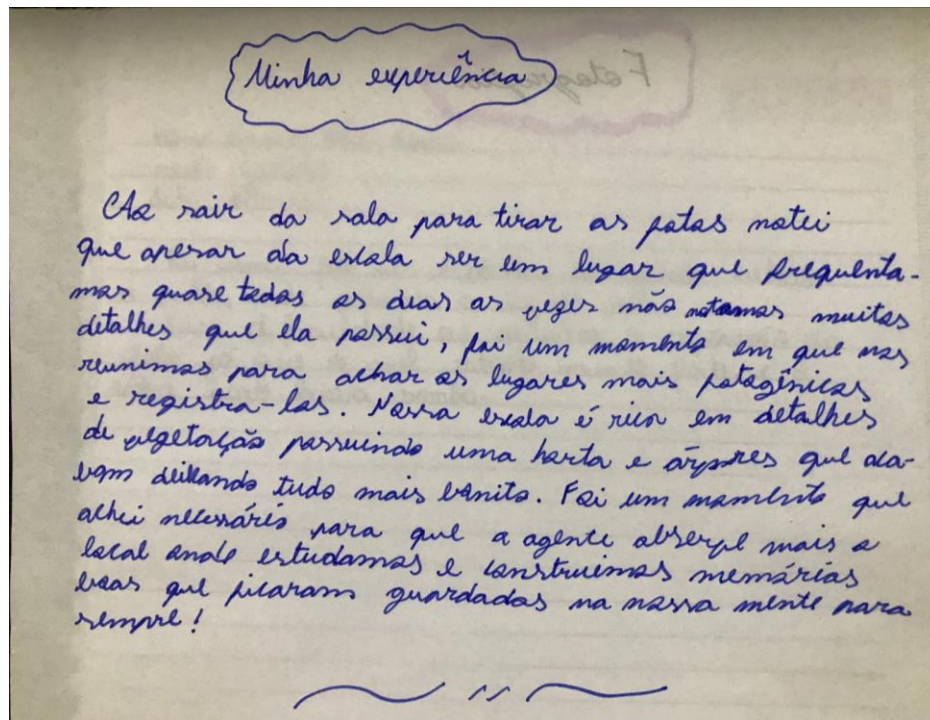 Minha experiência
Ao sair da sala para tirar as fotos notei
que apesar da escola ser um lugar que frequenta-
mos quase todos os dias as vezes não notamos muitos
detalhes que ela possui, foi um momento em que nos
reunimos para achar os lugares mais fotogênicos
e registra-los. Nossa escola é rica em detalhes
de vegetação possuindo uma horta e árvores que aca-
bam deixando tudo mais bonito. Foi um momento que
achei necessário para que a agente observe mais o
local onde estudamos e construimos memórias
boas que ficaram guardadas na nossa mente para
sempre!